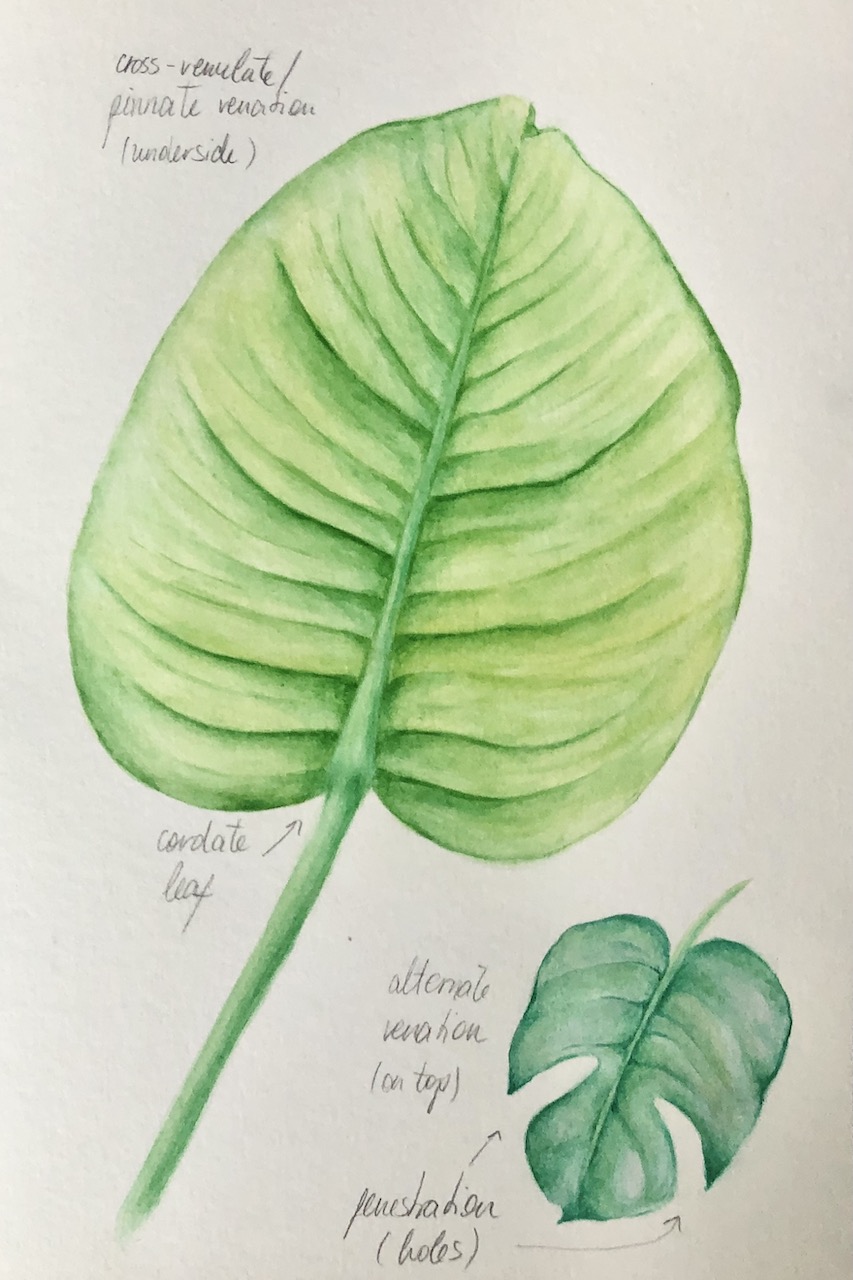 cross-venulate/
pinnate venation
(underside)
cordate
leaf
alternate
venation
(on top)
fenestration
(holes)